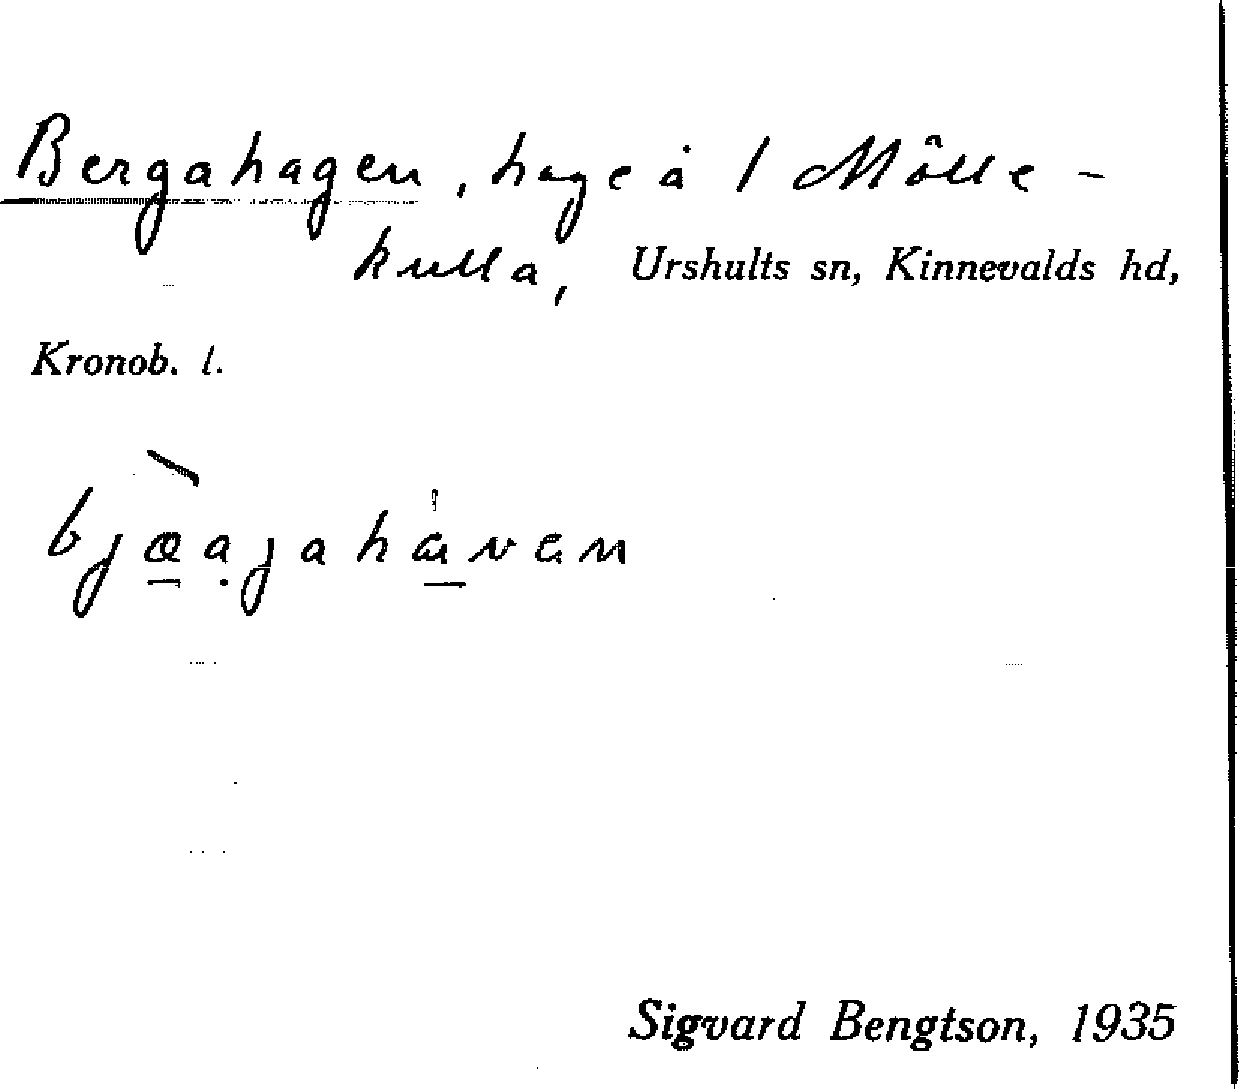 Bergahagen, hage å 1 Mölle-
kulla, Urshults sn, Kinnevalds hd,
Kronob. l.
bjæ̲̀ạjaha̲̍ven
Sigvard Bengtson, 1935